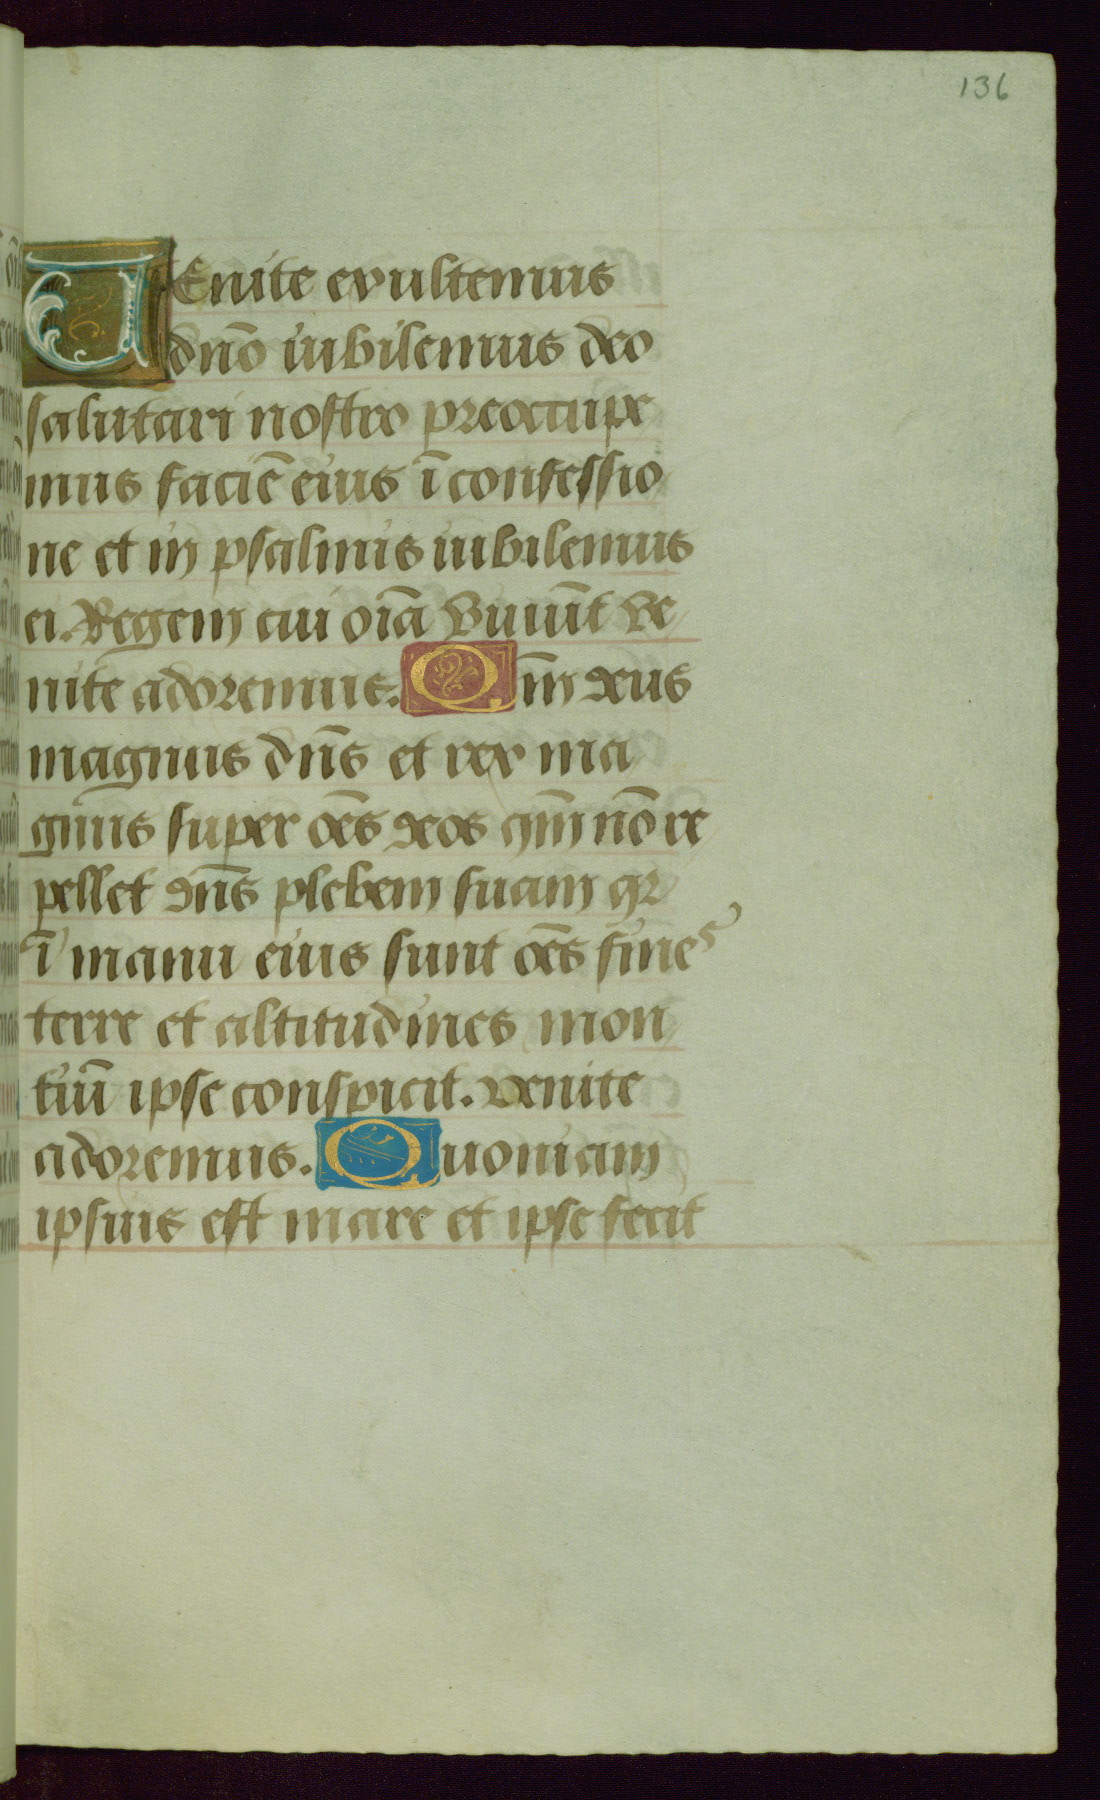 136
VEnite exultemus
dño iubilemus deo
salutari nostro preoccupe
mus faciē eius ī confessio
ne et in psalmis iubilemus
ei. Regem cui oīa viuūt ve
nite adoremus. Qm̄ deus
magnus dñs et rex ma
gnus super oēs deos qm̄ nō re
pellet dñs plebem suam qr
ī manu eius sunt oēs fines
terre et altitudines mon
tiū ipse conspicit. venite
adoremus. Quoniam
ipsius est mare et ipse fecit